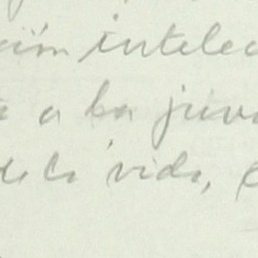 ión intelec
a a la juve
de la vida, e